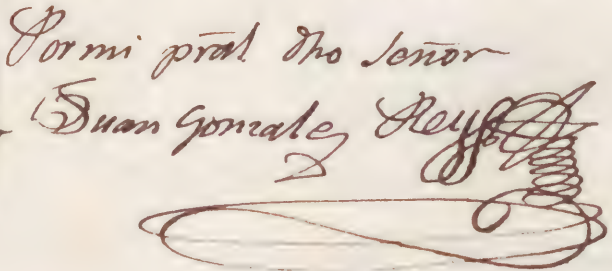 Por mi prãl dho señor
Juan Gonzalez Reyss